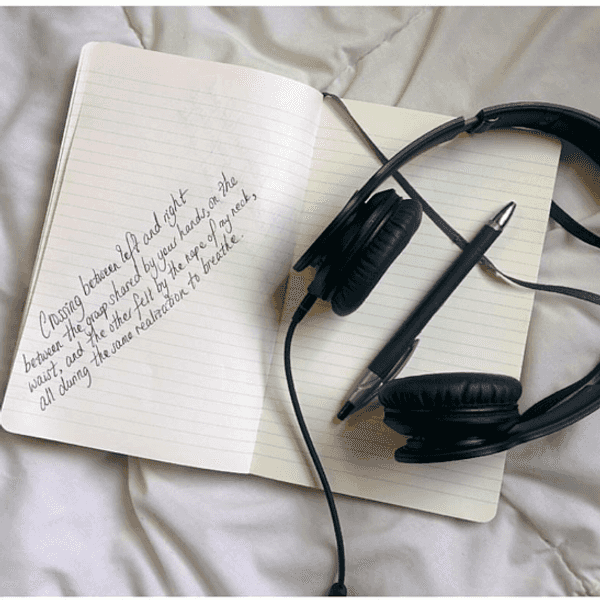 Crossing between left and right
between the grasp shared by your hands, on the
waist, and the other felt by the nape of my neck,
all during the same realization to breathe.